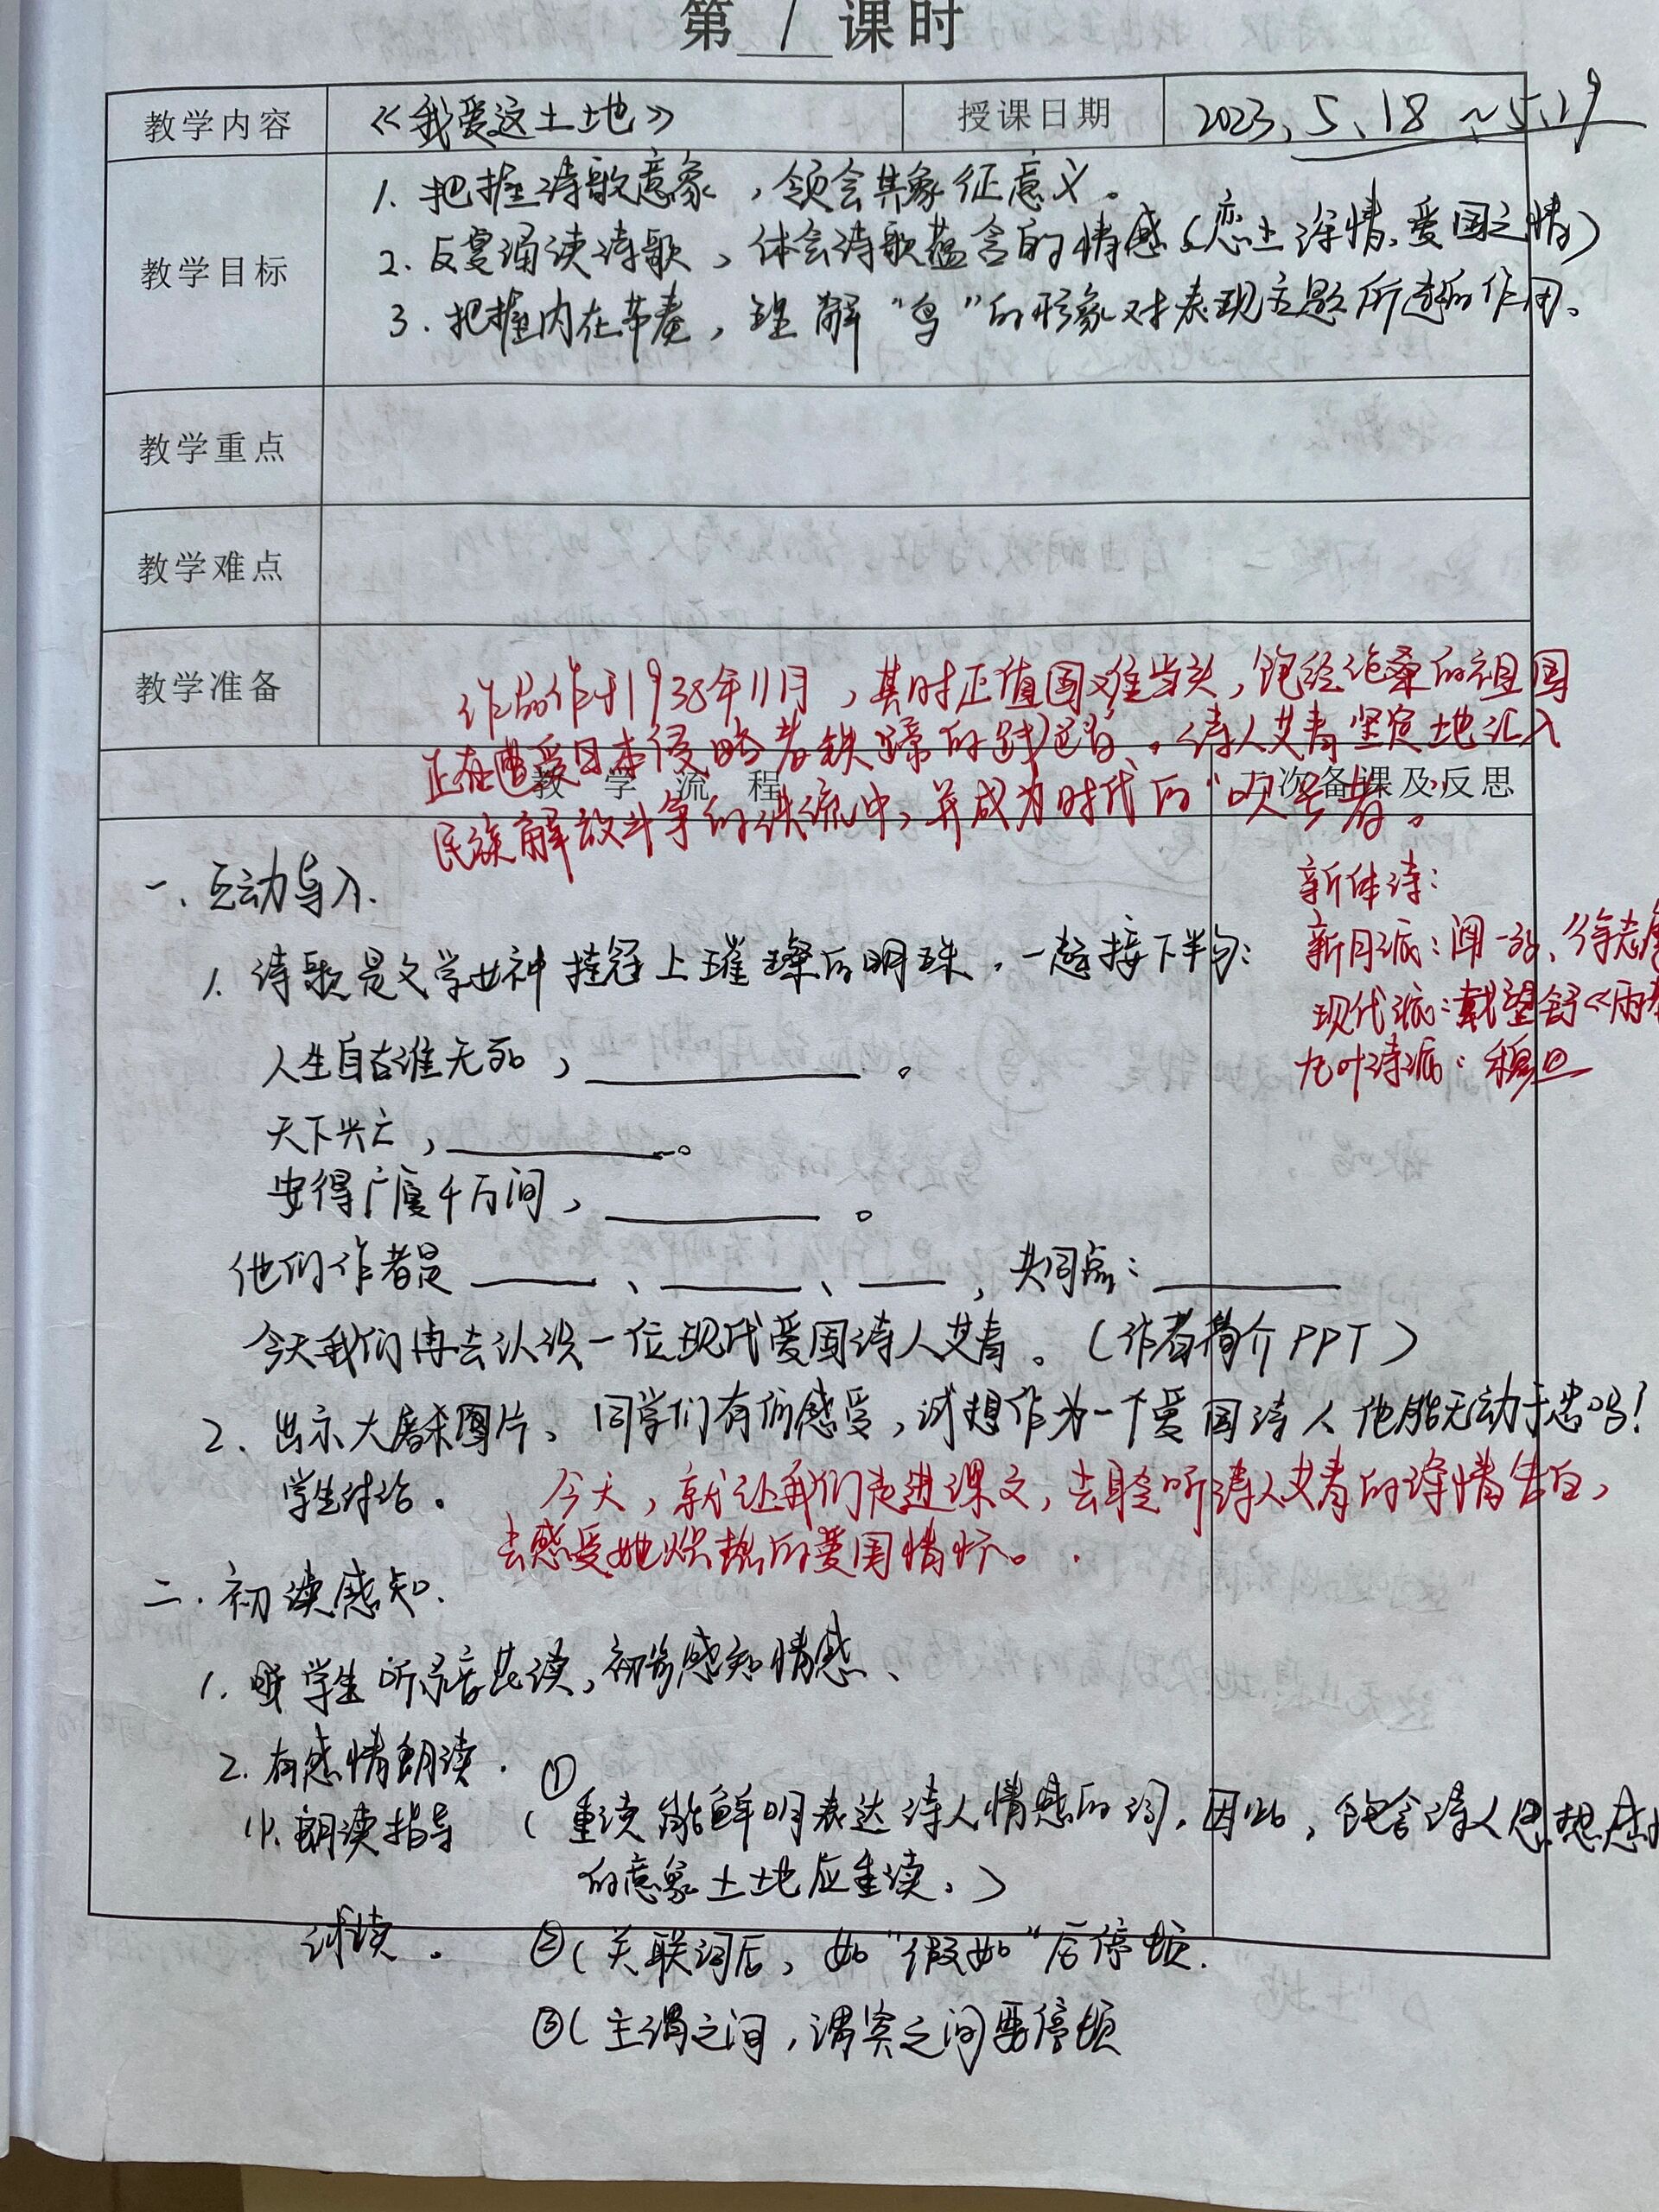 第 1 课时
教学内容 《我爱这土地》 授课日期 2023、5、18 ~5、19
教学目标
1. 把握诗歌意象，领会其象征意义。
2. 反复诵读诗歌，体会诗歌蕴含的情感（恋土深情、爱国之情）
3. 把握内在节奏，理解“鸟”的形象对表现主题所起的作用。
教学重点
教学难点
教学准备
作品作于1938年11月，其时正值国难当头，饱经沧桑的祖国
正在遭受日本侵略者铁蹄的践踏。诗人艾青坚定地汇入
教 学 流 程 二次备课及反思
民族解放斗争的洪流中，并成为时代的“吹号者”。
新体诗：
新月派：闻一多、徐志摩
现代派：戴望舒《雨巷
九叶诗派：穆旦
一. 互动导入.
1. 诗歌是文学女神桂冠上璀璨的明珠，一起接下半句：
人生自古谁无死，＿＿＿＿＿＿。
天下兴亡，＿＿＿＿＿。
安得广厦千万间，＿＿＿＿＿。
他们作者是＿＿＿、＿＿＿、＿＿，共同点：＿＿＿＿
今天我们再去认识一位现代爱国诗人艾青。（作者简介PPT）
2、出示大屠杀图片、同学们有何感受，试想作为一个爱国诗人他能无动于衷吗！
学生讨论。
今天，就让我们走进课文，去聆听诗人艾青的深情告白，
去感受她炽热的爱国情怀。
二. 初读感知.
1. 学生听录音范读，初步感知情感、
2. 有感情朗读.
(1). 朗读指导
①（重读能鲜明表达诗人情感的词，因此，饱含诗人思想感情
的意象土地应重读。）
试读。
②（关联词后，如“假如”后停顿.
③（主谓之间，谓宾之间要停顿